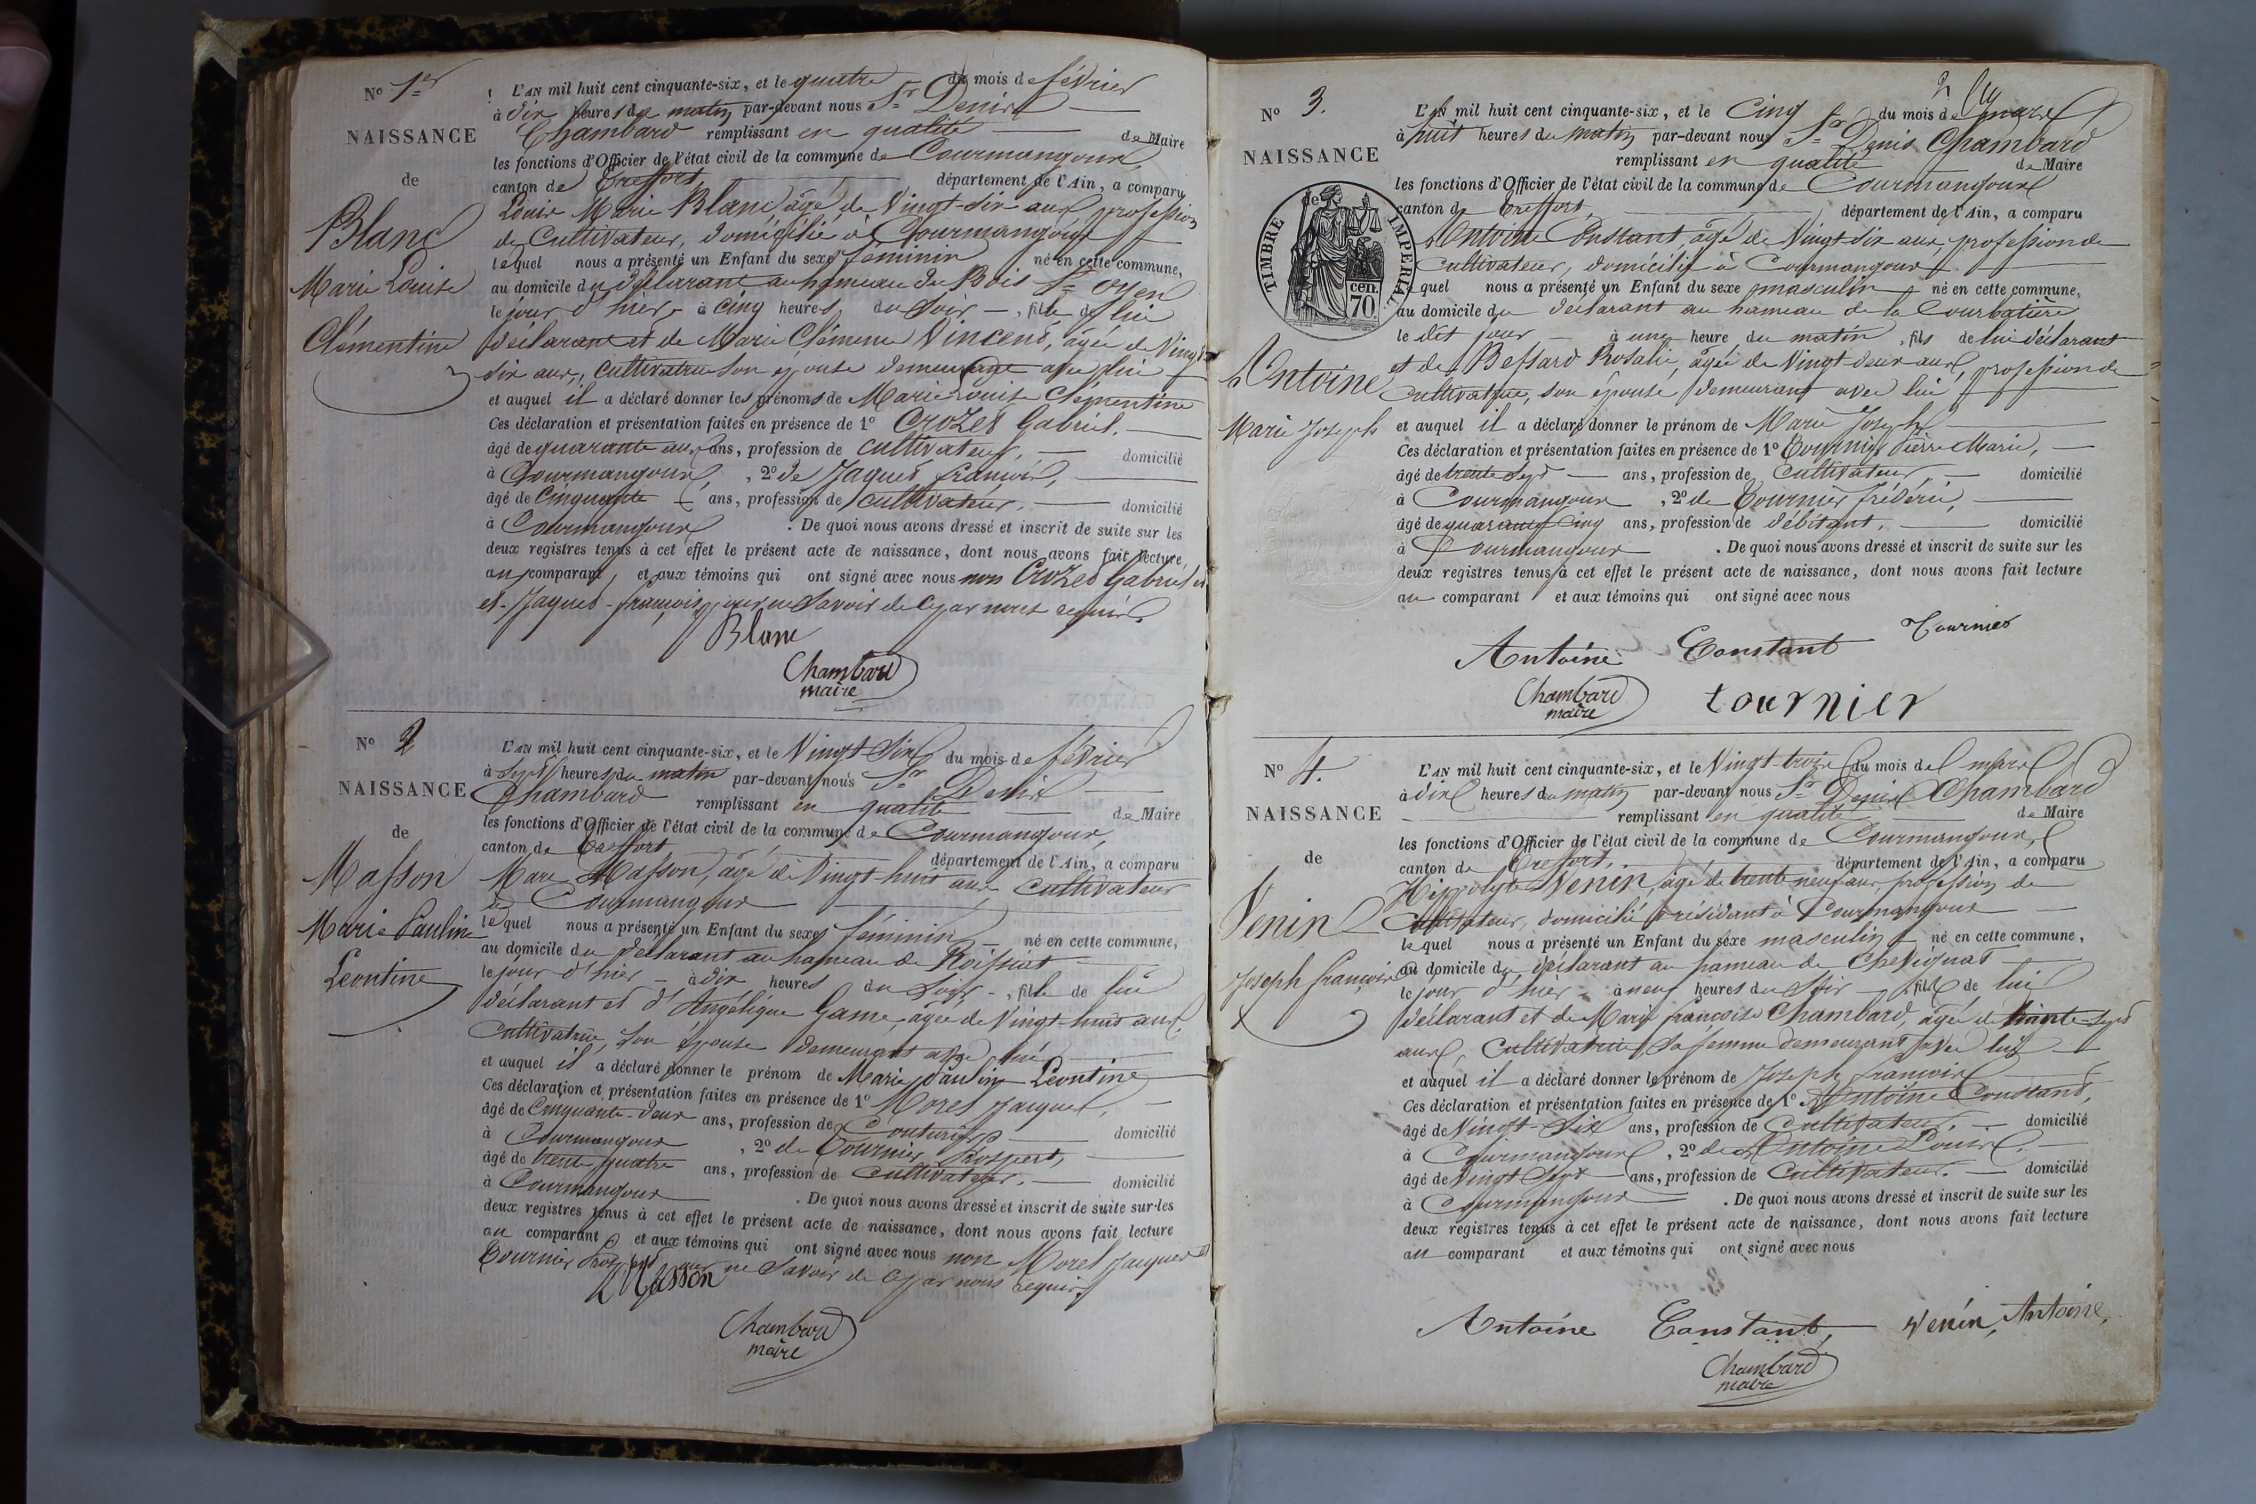 N° 1er
NAISSANCE
de
Blanc
Marie Louise
Clémentine
L'AN mil huit cent cinquante-six, et le quatre du mois de février
à dix heures du matin par-devant nous Sr Denis
Chambard remplissant en qualité de Maire
les fonctions d'Officier de l'état civil de la commune de Courmangoux
canton de Treffort, département de l'Ain, a comparu
Louis Marie Blanc âgé de Vingt-six ans profession
de Cultivateur, domicilié à Courmangoux
lequel nous a présenté un Enfant du sexe féminin né en cette commune,
au domicile du déclarant au hameau du Bois St Oyen
le jour d'hier à cinq heures du soir, fille de lui
déclarant et de Marie Clémence Vincent, âgée de Vingt
six ans, cultivatrice son épouse demeurant avec lui
et auquel il a déclaré donner les prénoms de Marie Louise Clémentine
Ces déclaration et présentation faites en présence de 1° Crozet Gabriel,
âgé de quarante ans, profession de cultivateur, domicilié
à Courmangoux, 2° de Jaquet françois,
âgé de cinquante ans, profession de cultivateur, domicilié
à Courmangoux. De quoi nous avons dressé et inscrit de suite sur les
deux registres tenus à cet effet le présent acte de naissance, dont nous avons fait lecture,
au comparant, et aux témoins qui ont signé avec nous non Crozet Gabriel
et Jaquet françois, pour ne savoir de ce par nous requis.
Blanc
Chambard
maire
N° 2
NAISSANCE
de
Masson
Marie Pauline
Léontine
L'AN mil huit cent cinquante-six, et le Vingt Six du mois de février
à sept heures du matin par-devant nous Sr Denis
Chambard remplissant en qualité de Maire
les fonctions d'Officier de l'état civil de la commune de Courmangoux,
canton de Treffort département de l'Ain, a comparu
Marc Masson, âgé de Vingt huit ans cultivateur
de Courmangoux
lequel nous a présenté un Enfant du sexe féminin né en cette commune,
au domicile du déclarant au hameau de Roissiat
le jour d'hier à dix heures du soir, fille de lui
déclarant et d'Angélique Game, âgée de Vingt-huit ans,
Cultivatrice, son épouse demeurant avec lui
et auquel il a déclaré donner le prénom de Marie Pauline Léontine
Ces déclaration et présentation faites en présence de 1° Morel Jacques,
âgé de Cinquante-deux ans, profession de Couturier domicilié
à Courmangoux, 2° de Tournier Prospert,
âgé de trente quatre ans, profession de cultivateur, domicilié
à Courmangoux. De quoi nous avons dressé et inscrit de suite sur les
deux registres tenus à cet effet le présent acte de naissance, dont nous avons fait lecture
au comparant et aux témoins qui ont signé avec nous non Morel Jacques et
Tournier Prospert pour ne savoir de ce par nous requis.
Masson
Chambard
maire
2
N° 3.
NAISSANCE
de
TIMBRE IMPERIAL
70 cen.
Antoine
Marie Joseph
L'AN mil huit cent cinquante-six, et le Cinq du mois de mars
à huit heures du matin par-devant nous Sr Denis Chambard
remplissant en qualité de Maire
les fonctions d'Officier de l'état civil de la commune de Courmangoux
canton de Treffort, département de l'Ain, a comparu
Antoine Constant, âgé de Vingt-six ans, profession de
Cultivateur, domicilié à Courmangoux
lequel nous a présenté un Enfant du sexe masculin né en cette commune,
au domicile du déclarant au hameau de la Courbatière
le dit jour à une heure du matin, fils de lui déclarant
et de Bessard Rosalie, âgée de Vingt-deux ans, profession de
Cultivatrice, son épouse demeurant avec lui
et auquel il a déclaré donner le prénom de Marie Joseph
Ces déclaration et présentation faites en présence de 1° Tournier Pierre Marie,
âgé de trente sept ans, profession de Cultivateur domicilié
à Courmangoux, 2° de Tournier frédéric,
âgé de quarante cinq ans, profession de débitant, domicilié
à Courmangoux. De quoi nous avons dressé et inscrit de suite sur les
deux registres tenus à cet effet le présent acte de naissance, dont nous avons fait lecture
au comparant et aux témoins qui ont signé avec nous
Antoine Constant Tournier
Chambard
maire
tournier
N° 4.
NAISSANCE
de
Venin
Joseph françois
L'AN mil huit cent cinquante-six, et le Vingt trois du mois de mars
à dix heures du matin par-devant nous Sr Denis Chambard
remplissant en qualité de Maire
les fonctions d'Officier de l'état civil de la commune de Courmangoux
canton de Treffort, département de l'Ain, a comparu
Hippolyte Venin, âgé de trente neuf ans, profession de
Cultivateur, domicilié résidant à Courmangoux
lequel nous a présenté un Enfant du sexe masculin né en cette commune,
au domicile du déclarant au hameau de Chevignat
le jour d'hier à neuf heures du soir, fils de lui
déclarant et de Mary françoise Chambard, âgée de trente-sept
ans, cultivatrice sa femme demeurant avec lui
et auquel il a déclaré donner le prénom de Joseph françois
Ces déclaration et présentation faites en présence de 1° Antoine Constant,
âgé de Vingt-Six ans, profession de Cultivateur, domicilié
à Courmangoux, 2° de Antoine Louis,
âgé de Vingt Sept ans, profession de Cultivateur. domicilié
à Courmangoux. De quoi nous avons dressé et inscrit de suite sur les
deux registres tenus à cet effet le présent acte de naissance, dont nous avons fait lecture
au comparant et aux témoins qui ont signé avec nous
Antoine Constant, Venin, Antoine,
Chambard
maire